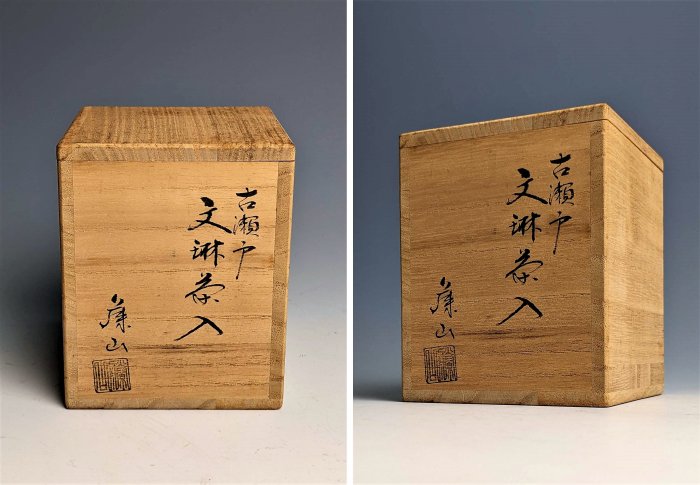 古瀬戸
文琳茶入
山
古瀬戸
文琳茶入
山